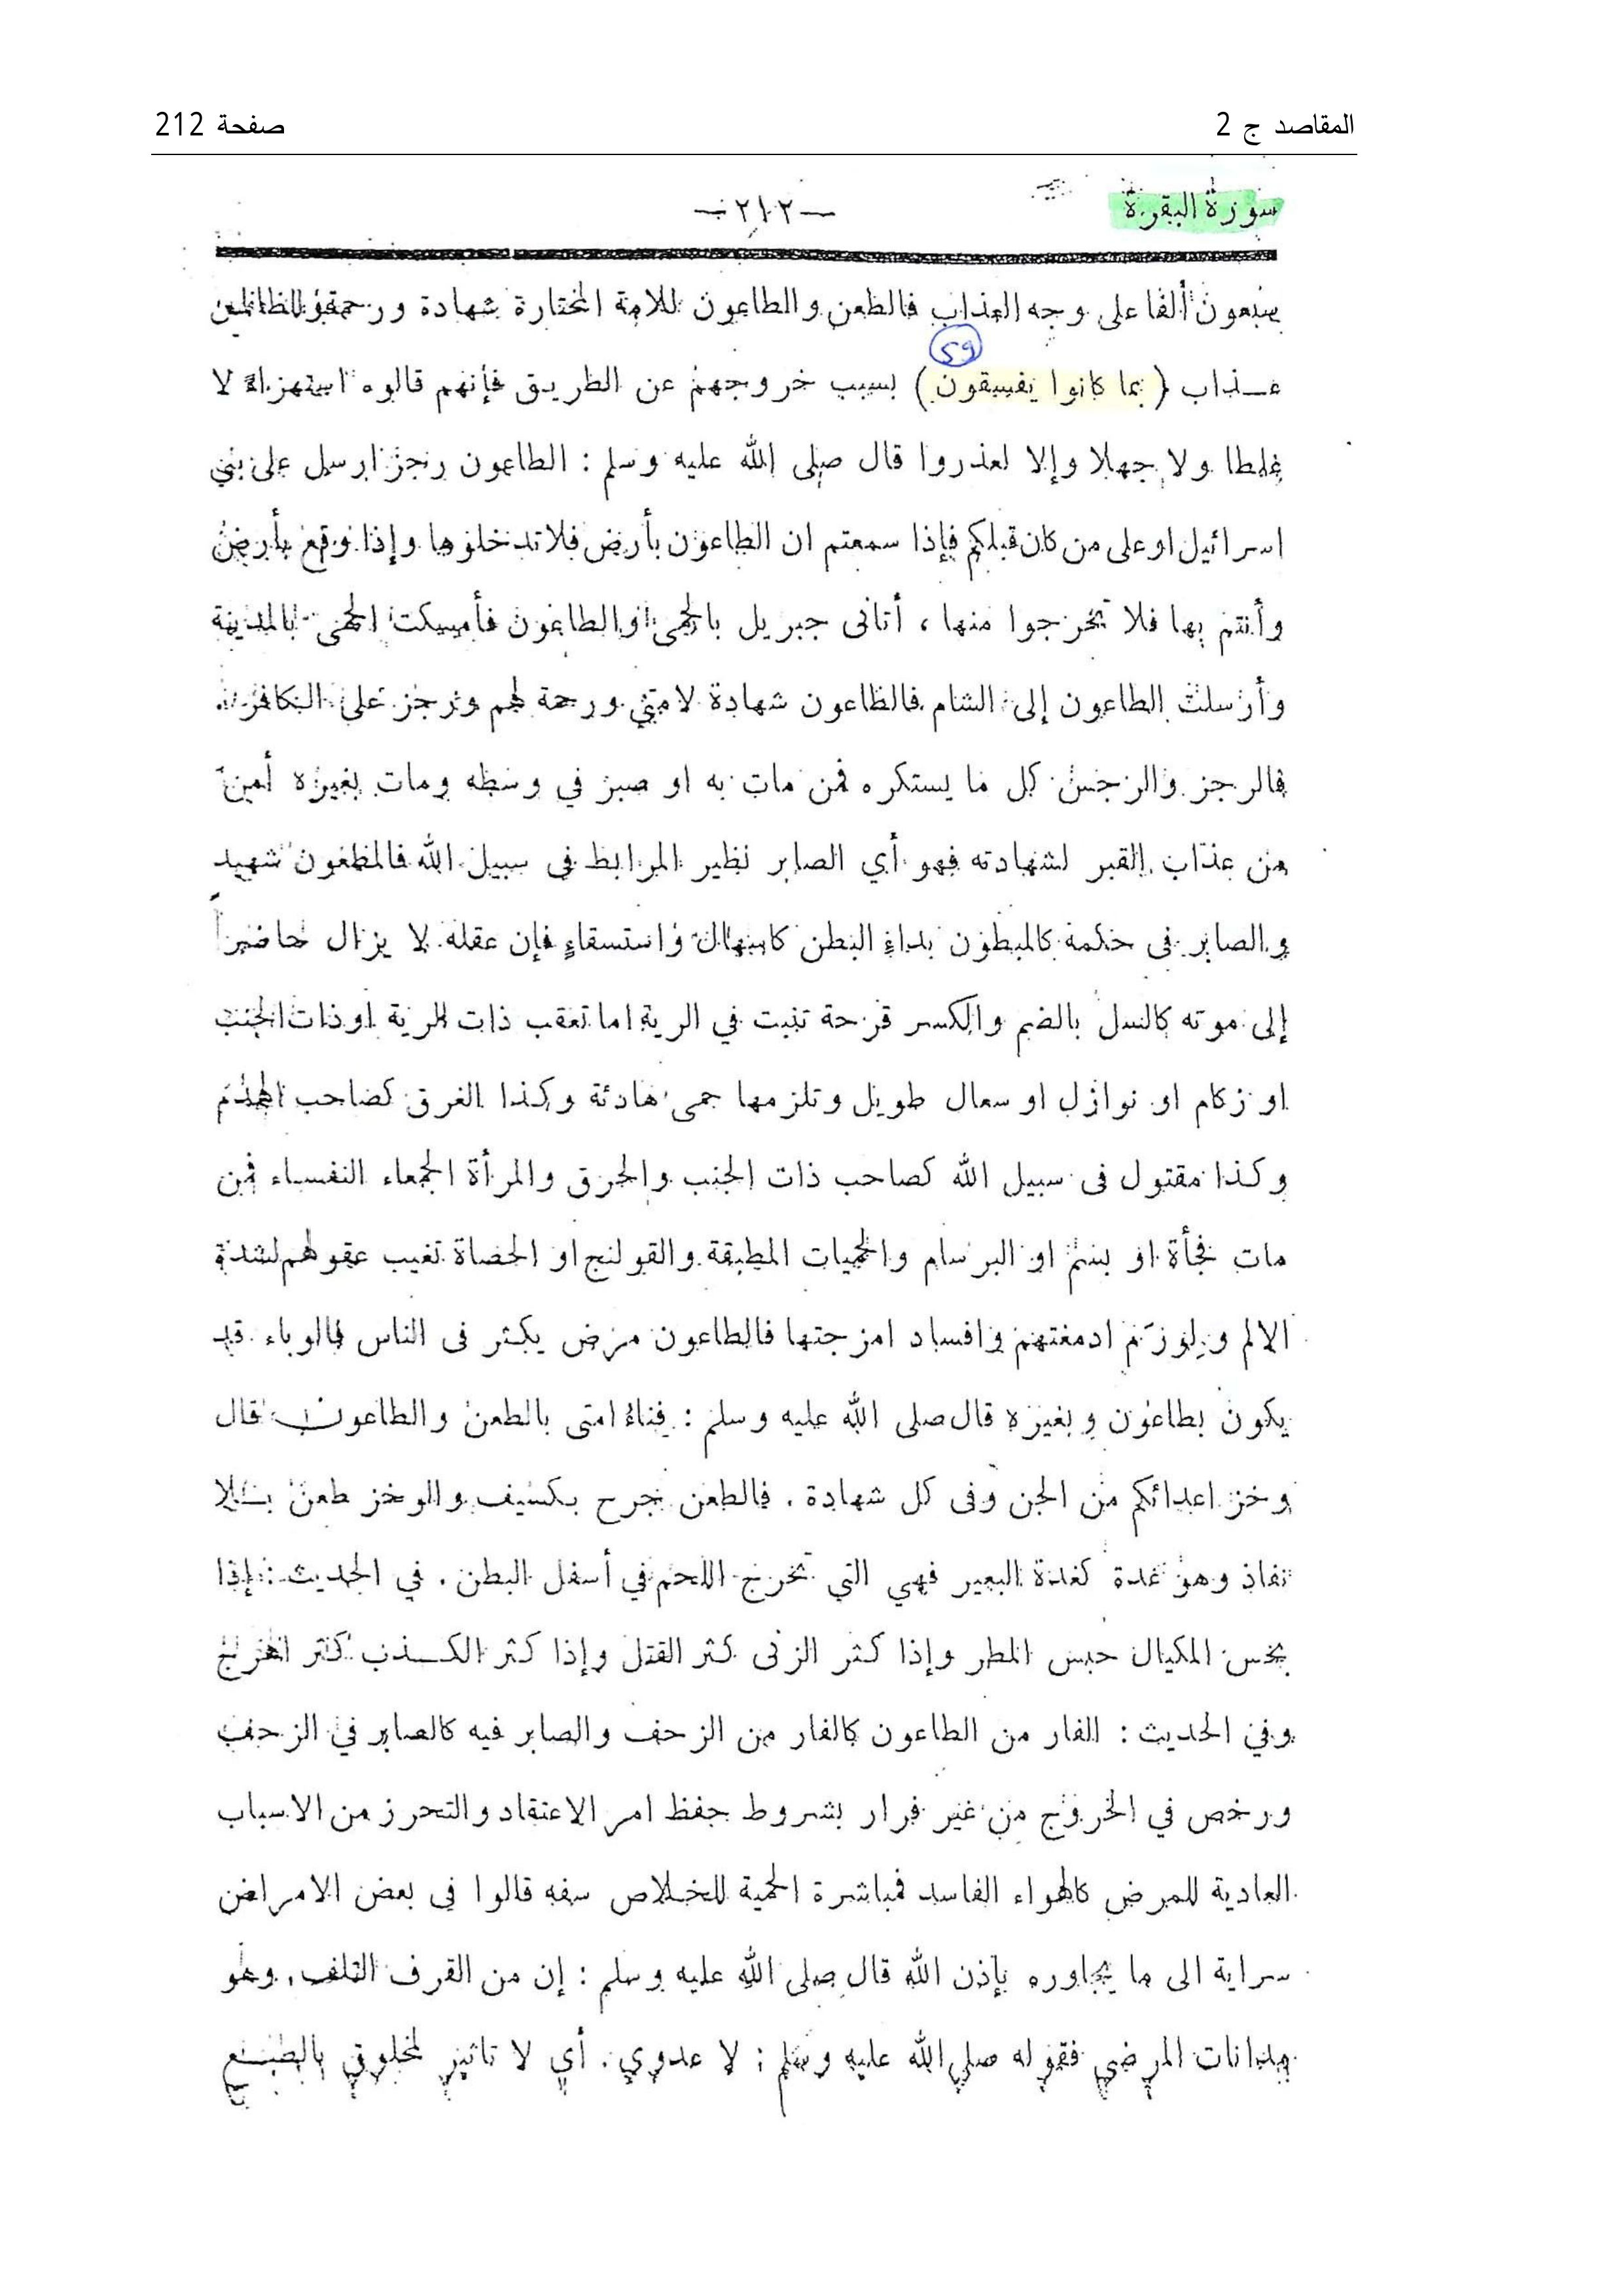 المقاصد ج 2
صفحة 212
سورة البقرة
— ٢١٢ —
سبعون ألفا على وجه العذاب فالطعن والطاعون للامة المختارة شهادة ورحمة وللظالمين
عــذاب ( بما كانوا يفسقون ) بسبب خروجهم عن الطريق فإنهم قالوه استهزاء لا
59
غلطا ولا جهلا وإلا لعذروا قال صلى الله عليه وسلم : الطاعون رجز ارسل على بني
اسرائيل او على من كان قبلكم فإذا سمعتم ان الطاعون بأرض فلا تدخلوها وإذا وقع بأرض
وأنتم بها فلا تخرجوا منها ، أتانى جبريل بالحمى والطاعون فأمسكت الحمى بالمدينة
وأرسلت الطاعون إلى الشام فالطاعون شهادة لامتي ورحمة لهم ورجز على الكافرين.
فالرجز والرجس كل ما يستكره فمن مات به او صبر في وسطه ومات بغيره أمن
من عذاب القبر لشهادته فهو أي الصابر نظير المرابط فى سبيل الله فالمطعون شهيد
والصابر فى حكمة كالمبطون بداء البطن كاسهال واستسقاء فإن عقله لا يزال حاضراً
إلى موته كالسل بالضم والكسر قرحة تنبت في الرية اما تعقب ذات الرية او ذات الجنب
او زكام او نوازل او سعال طويل وتلزمها حمى هادئة وكذا الغرق كصاحب الهدم
وكذا مقتول فى سبيل الله كصاحب ذات الجنب والحرق والمرأة الجمعاء النفساء فمن
مات فجأة او بسم او البرسام والحميات المطبقة والقولنج او الحصاة تغيب عقولهم لشدة
الالم ولورم ادمغتهم وافساد امزجتها فالطاعون مرض يكثر فى الناس فالوباء قد
يكون بطاعون وبغيره قال صلى الله عليه وسلم : فناء امتى بالطعن والطاعون قال
وخز اعدائكم من الجن وفى كل شهادة . فالطعن جرح بكسيف والوخز طعن بــلا
نفاذ وهو غدة كغدة البعير فهي التي تخرج اللحم في أسفل البطن . في الحديث : إذا
بخس المكيال حبس المطر وإذا كثر الزنى كثر القتل وإذا كثر الكــذب كثر الهرج
وفي الحديث : الفار من الطاعون كالفار من الزحف والصابر فيه كالصابر في الزحف
ورخص في الخروج من غير فرار بشروط حفظ امر الاعتقاد والتحرز من الاسباب
العادية للمرض كالهواء الفاسد فمباشرة الحمية للخلاص سفه قالوا فى بعض الامراض
سراية الى ما يجاوره بإذن الله قال صلى الله عليه وسلم : إن من القرف التلف . وهو
مدانات المرضى فقوله صلى الله عليه وسلم : لا عدوي . أي لا تاثير لمخلوق بالطبــع